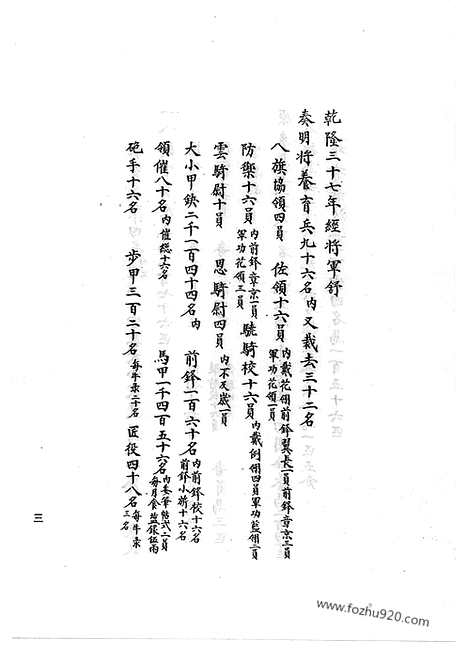 乾隆三十七年經將軍舒
奏明將養育兵九十六名內又裁去三十二名
八旗協領四員 佐領十六員內戴花翎前鋒翼長一員前鋒章京三員軍功花翎一員
防禦十六員內前鋒章京一員軍功花領三員 驍騎校十六員內戴倒翎四員軍功藍翎二員
雲騎尉十員 恩騎尉四員內不及歲一員
大小甲鈌二千一百四十四名內 前鋒一百六十名內前鋒校十六名前鋒小將十六名
領催八十名內催總十六名 馬甲一千四百五十六名內委筆帖式二員每月食鹽銀伍兩
砲手十六名 步甲三百二十名每牛彔二十名 匠役四十八名每牛彔三名
三
www.fozhu920.com